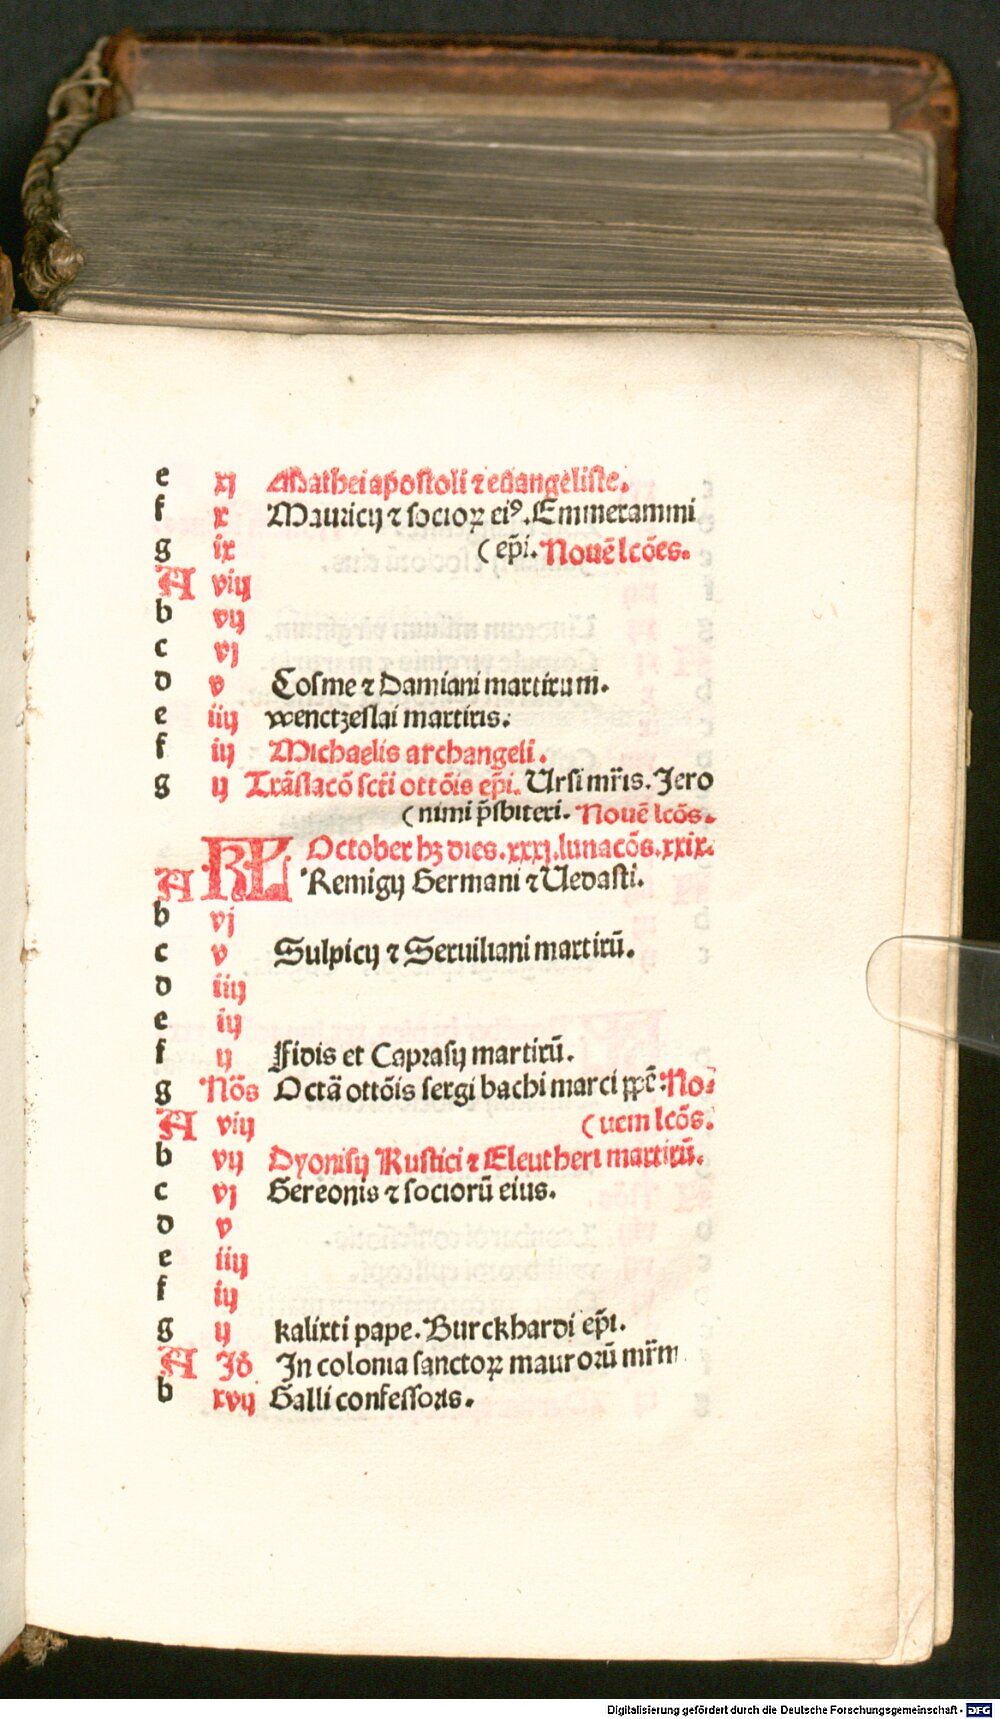 e xj Mathei apostoli ⁊ euãngeliste.
f x Mauricij ⁊ socioꝝ eiꝰ. Emmerammi
g ix (ep̃i. Nouẽ lcões.
A viij
b vij
c vj
d v Cosme ⁊ Damiani martirum.
e iiij wenctzeslai martiris.
f iij Michaelis archangeli.
g ij Trãslacõ scti ottõis ep̃i. Ursi mr̃is. Jero
(nimi p̃sbiteri. Nouẽ lcõs.
KL October hꝫ dies. xxxj. lunacõs. xxix.
A Remigij Germani ⁊ Uedasti.
b vj
c v Sulpicij ⁊ Seruiliani martirũ.
d iiij
e iij
f ij Fidis et Caprasij martirũ.
g Nõs Octã ottõis sergi bachi marci ꝓpẽ. No⸗
A viij (uem lcõs.
b vij Dyonisij Rustici ⁊ Eleutheri martirũ.
c vj Gereonis ⁊ sociorũ eius.
d v
e iiij
f iij
g ij kalixti pape. Burckhardi ep̃i.
A Jd In colonia sanctoꝝ maurorũ mr̃m
b xvij Galli confessoris.
Digitalisierung gefördert durch die Deutsche Forschungsgemeinschaft - DFG